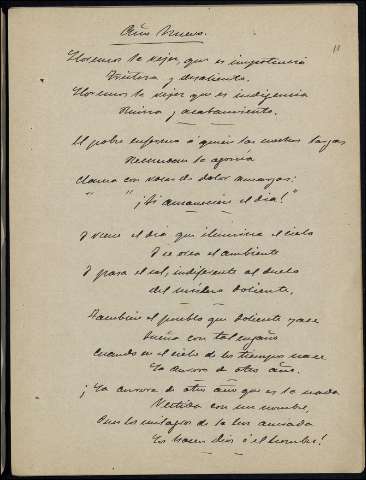 Año Nuevo.
11
Lloremos la vejez, que es impotencia
Tristeza y desaliento.
Lloremos la vejez que es indigencia
Ruina y acabamiento.
El pobre enfermo á quien las noches largas
Recuerdan la agonía
Clama con voces de dolor amargas:
" " ¡Si amaneciera el día!"
I viene el día que ilumina el cielo
I se orea el ambiente
I pasa el sol, indiferente al duelo
del mísero doliente.
También el pueblo que doliente yace
Sueña con tal engaño
Cuando en el cielo de los tiempos nace
La aurora de otro año.
¡La aurora de otro año que es la nada
Vestida con un nombre,
Pues los milagros de la luz ansiada
Los hacen Dios ó el hombre!